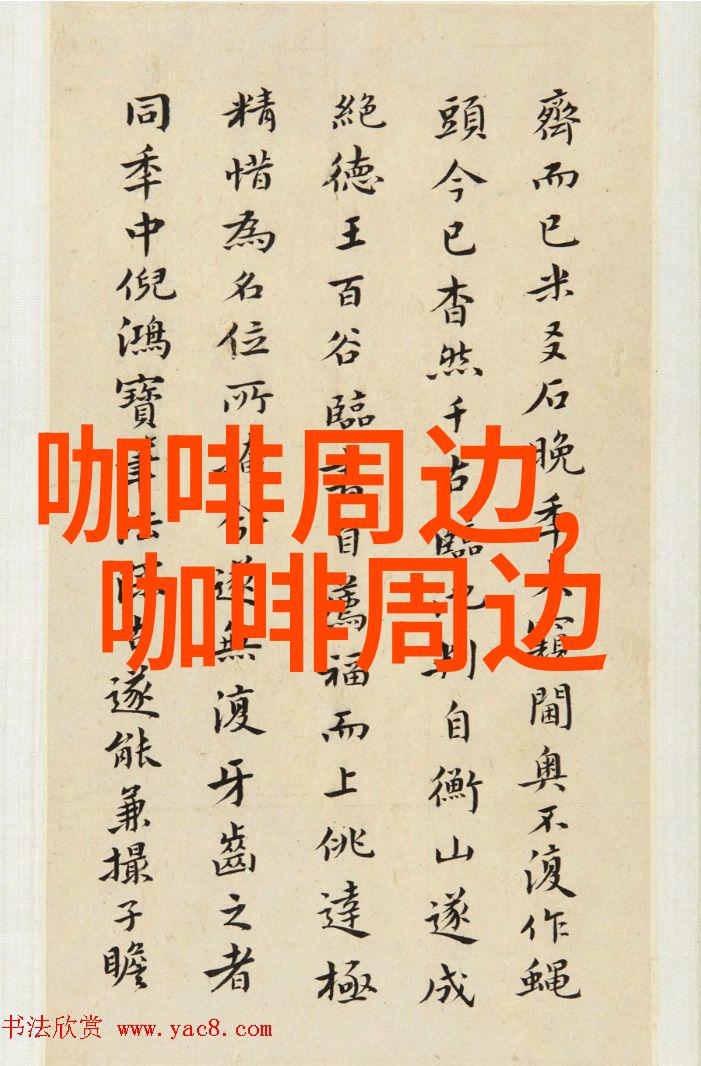 齊而已米友石晚年大窺閫奧不復作蠅
頭今已杳然千古臨池判自衡山遂成
絕德王百谷臨書自薦福而上佻達極
精惜為名位所今遂無復牙齒之者
同年中倪鴻寶筆法深古遂能兼撮子瞻
咖啡周边,
咖啡周边
书法欣赏 www.yac8.com